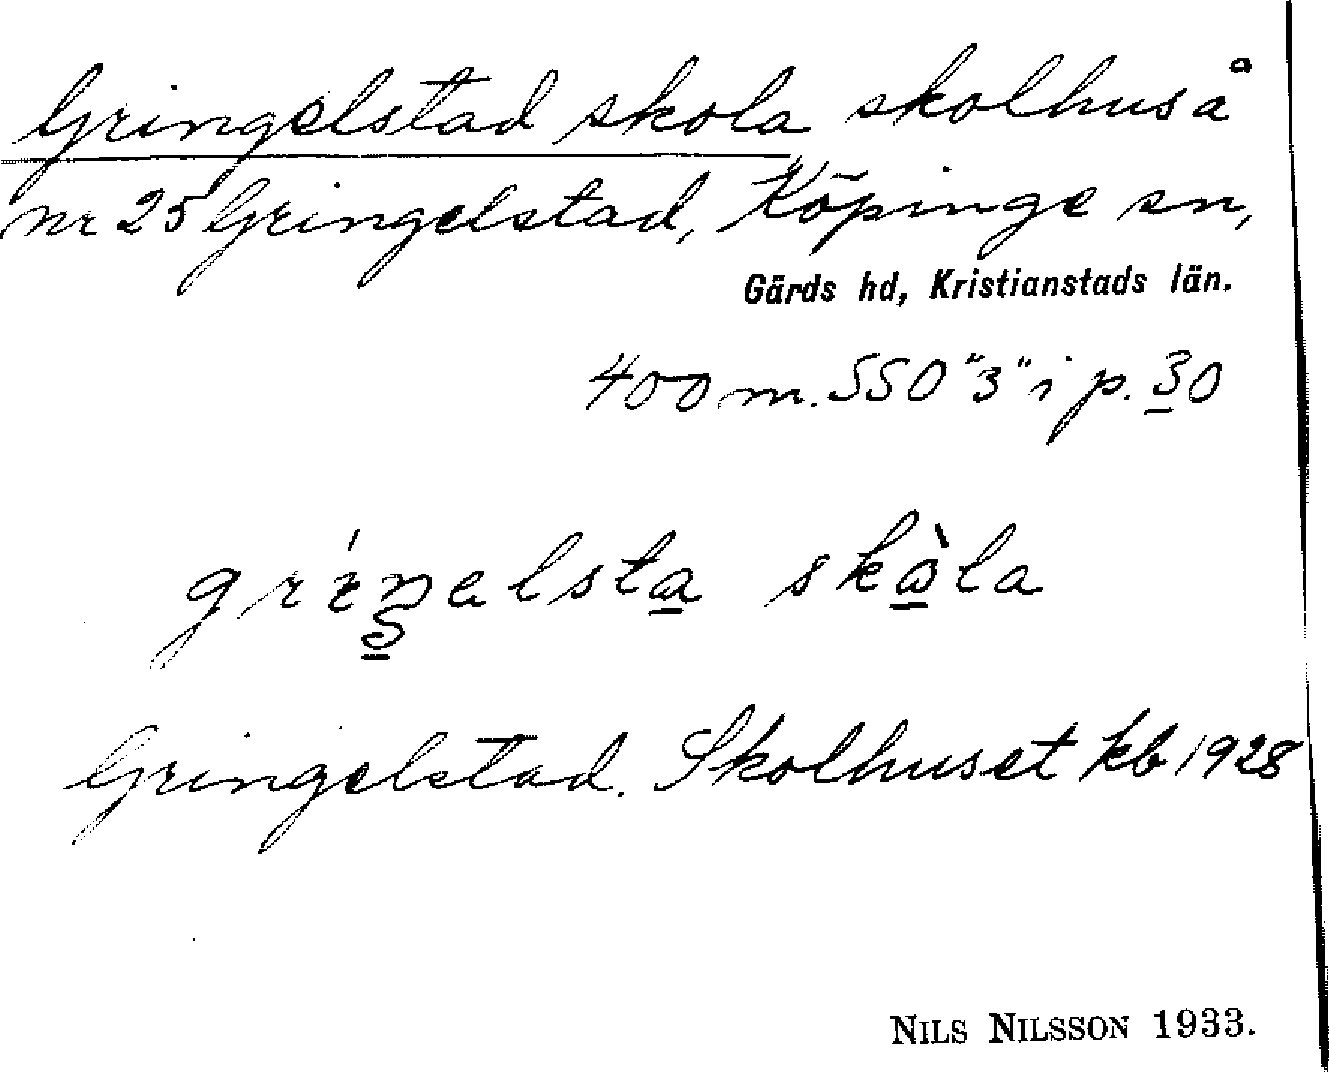 Gringelstad skola skolhus å
nr 25 Gringelstad, Köpinge sn,
Gärds hd, Kristianstads län.
400 m. SSO "3" i p. 30
Gringelstad. Skolhuset kb 1928
NILS NILSSON 1933.